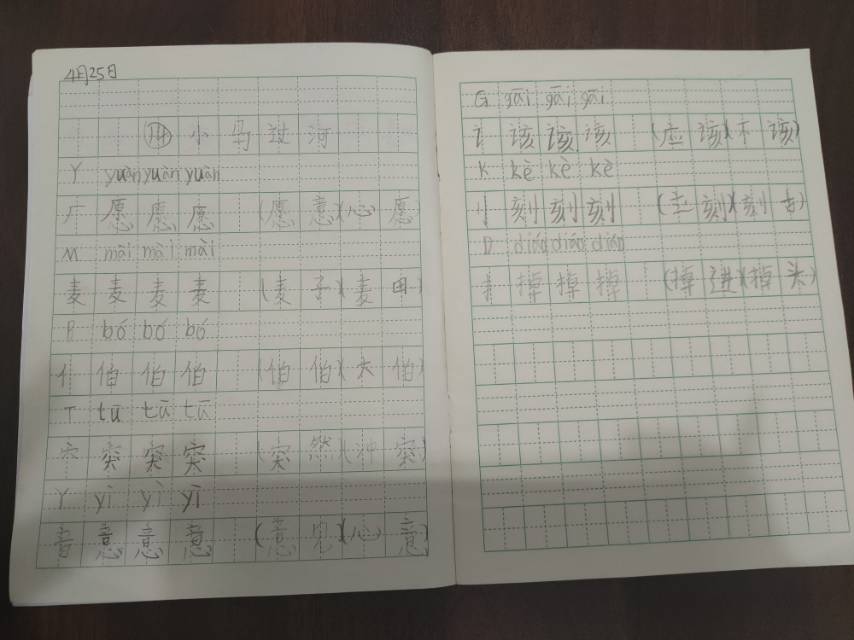 4月25日
⑭ 小马过河
Y yuàn yuàn yuàn
厂 愿 愿 愿 (愿意)(心愿
M mài mài mài
麦 麦 麦 麦 (麦子)(麦田)
B bó bó bó
亻 伯 伯 伯 (伯伯)(大伯)
T tū tū tū
穴 突 突 突 (突然)(冲突)
Y yì yì yì
音 意 意 意 (意见)(心意)
G gāi gāi gāi
讠 该 该 该 (应该)(不该)
K kè kè kè
刂 刻 刻 刻 (立刻)(刻
D diào diào diào
扌 掉 掉 掉 (掉进)(掉头)